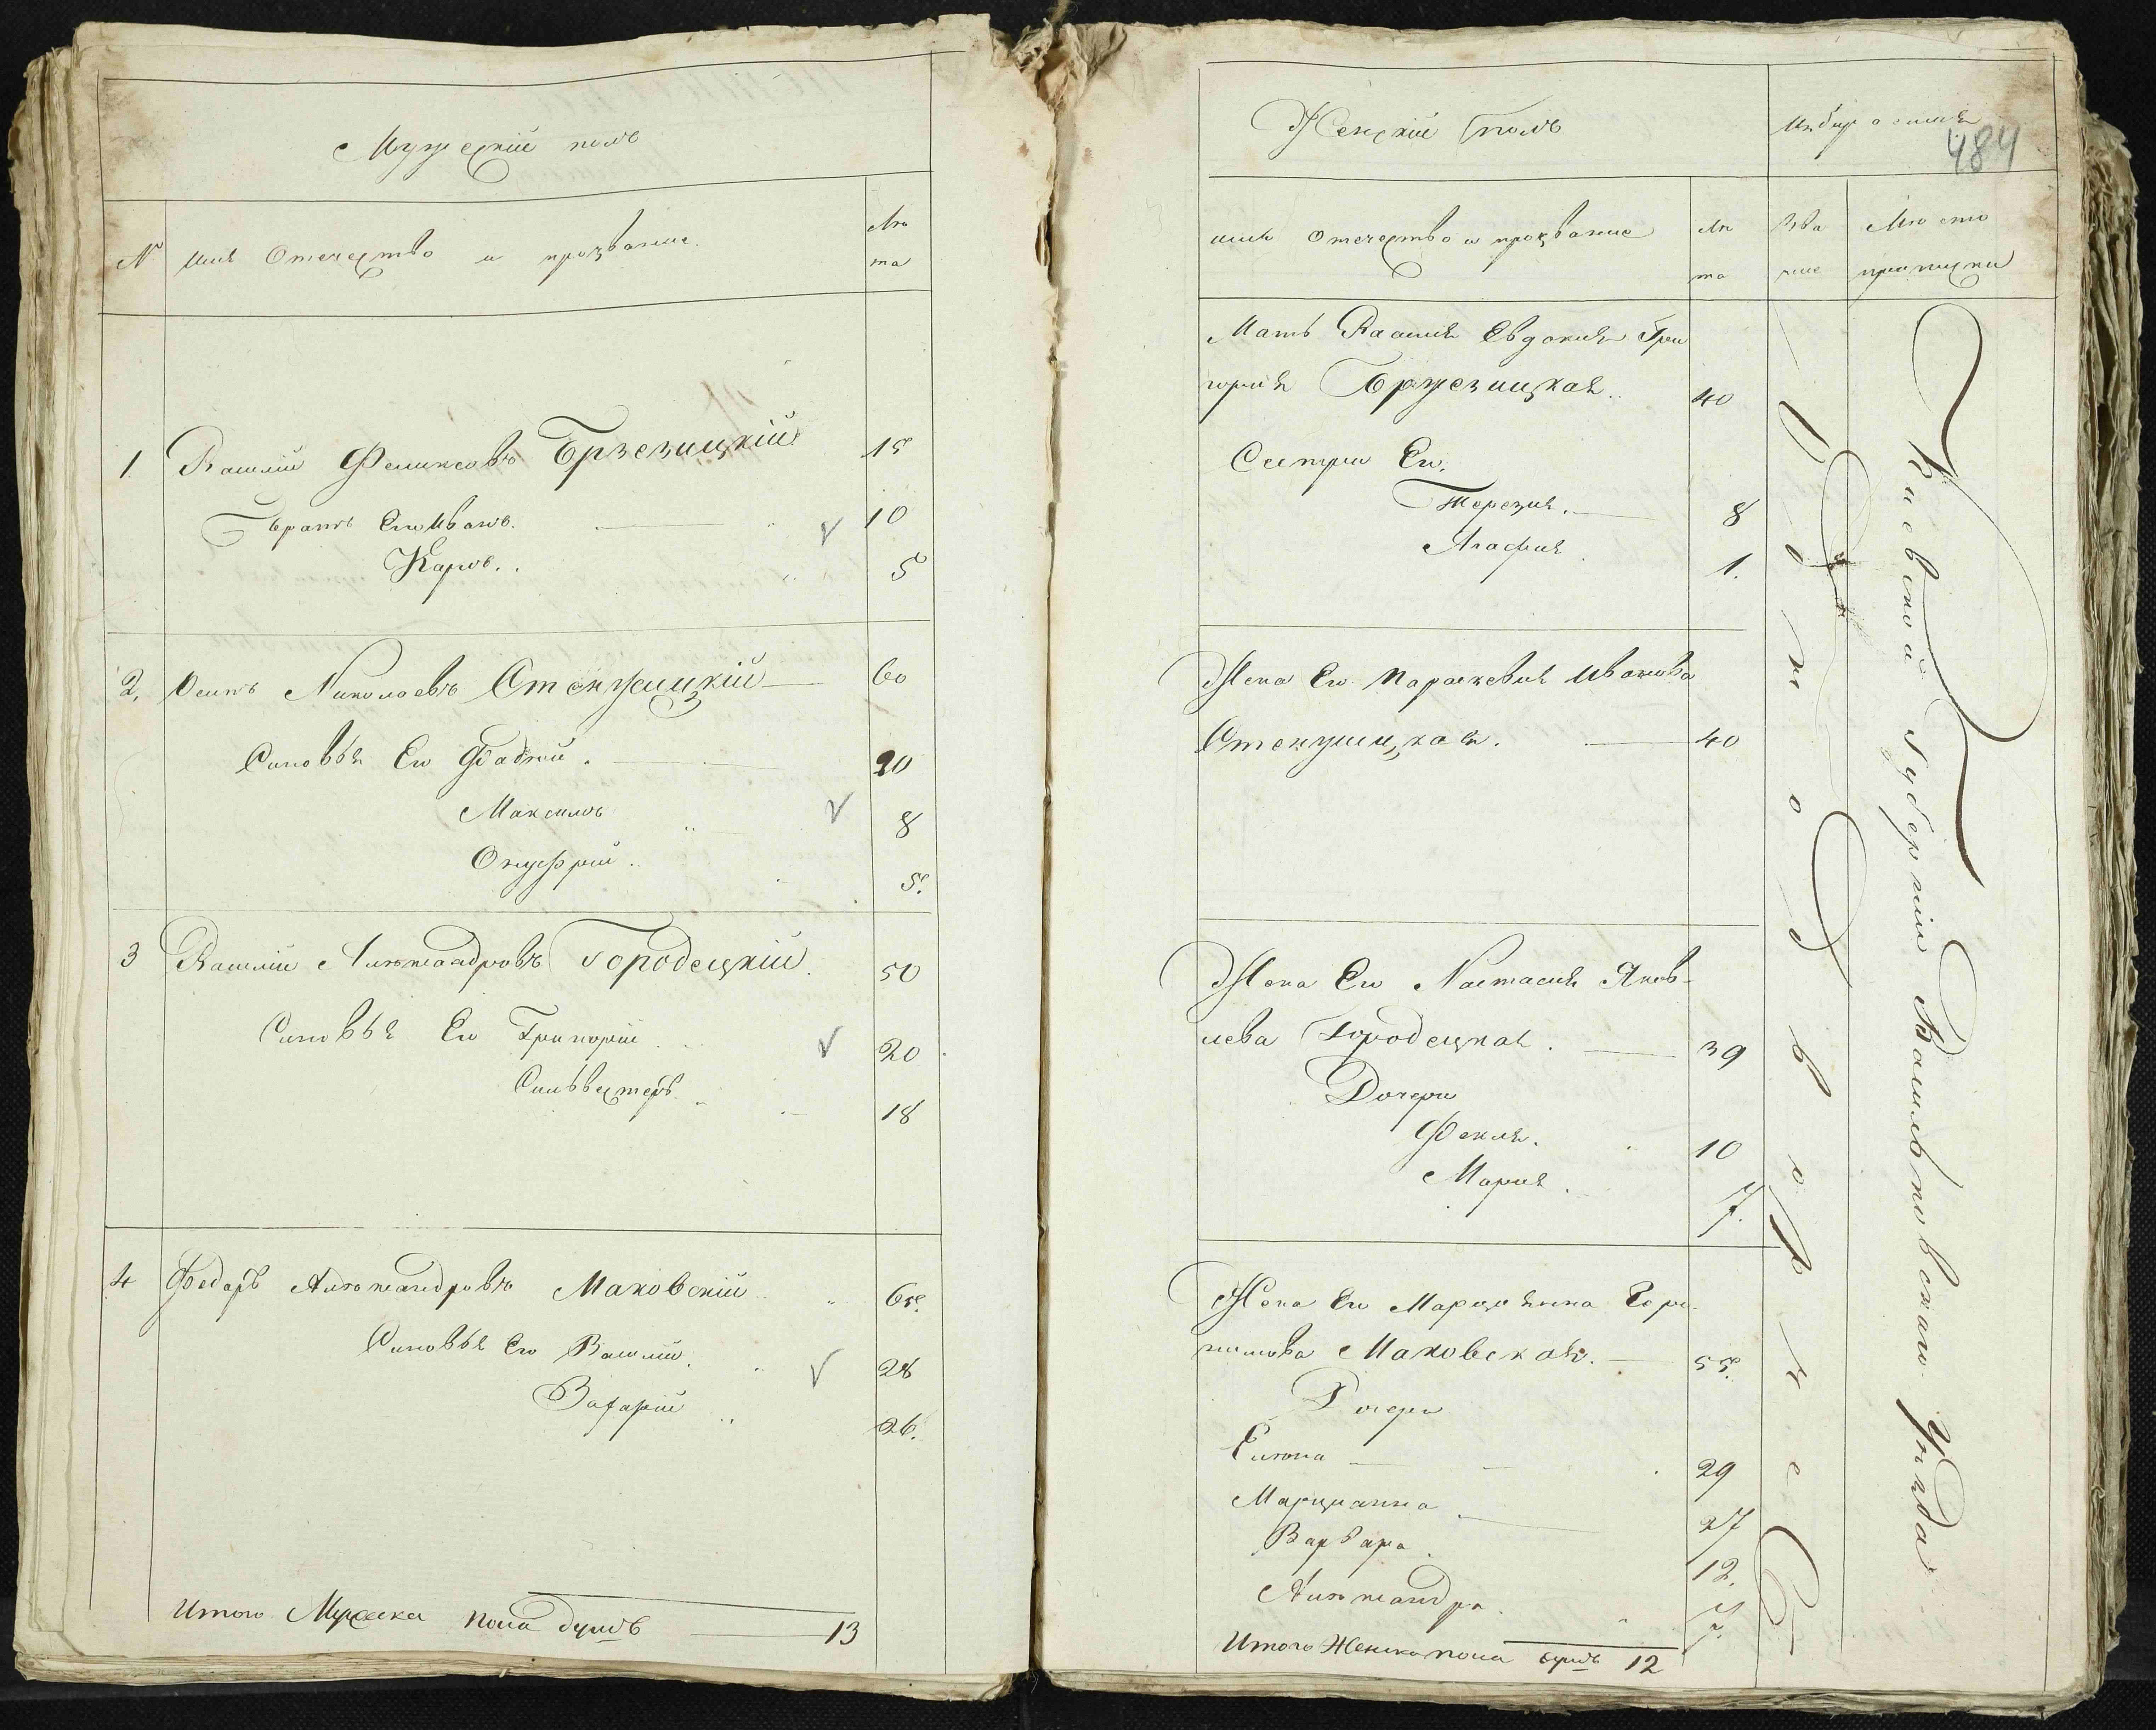 Мужескій полъ
N Имя Отечество и прозваніе. Лѣ
та
1 Василій Феликсовъ Брзезицкій 15
Братъ Его Иванъ. 10
Карлъ. 5
2. Осипъ Николаевъ 60
Сыновья Его Фадѣй. 20
Максимъ 8
Онуфрій. 5.
3 Василій Александровъ Городецкій. 50
Сыновья Его Григорій 20
Сильвестеръ. 18
4 Федоръ Александровъ Маковскій 65.
Сыновья Его Василій. 28
Захарій 26.
Итого Мужска пола душъ 13
Женскій полъ
484
имя Отечество и прозваніе Лѣ Зва Мѣсто
та ніе приписки
Мать Василія Евдокия Гри
горія Бржезицкая. 40
Сестры Ег.
Терезия. 8
Агафия 1.
Жена Его Параскевия Иванова
40
Жена Его Настасия Яков-
лева Городецкая. 39
Дочери
Фекла. 10
Мария. 7.
Жена Его Марцианна
Маковская. 55.
Дочери
Елена 29
Марцианна 27
Варвара. 12.
Александра. 7.
Итого Женска пола душъ 12
Однодворческ
Киевской Губерніи Васильковскаго Уѣзда